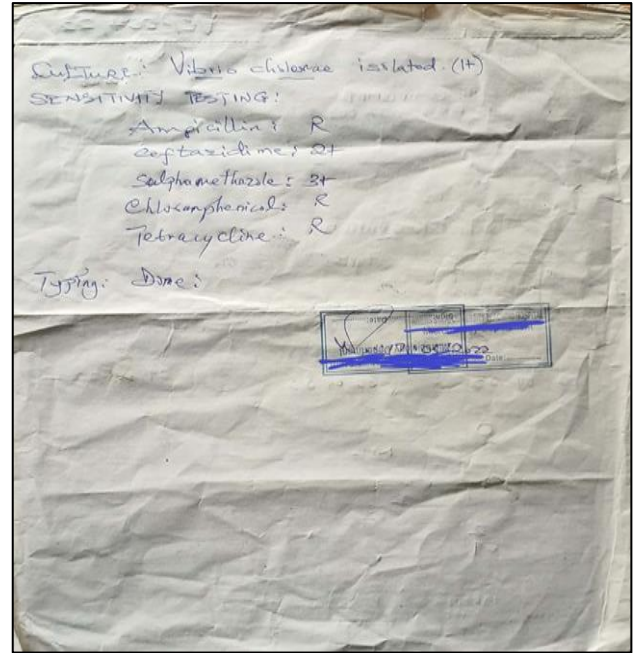 CULTURE: Vibrio cholerae isolated. (1+)
SENSITIVITY TESTING:
Ampicillin: R
Ceftazidime: 2+
Sulphamethazole: 3+
Chloramphenicol: R
Tetracycline: R
Typing: Done:
Date: